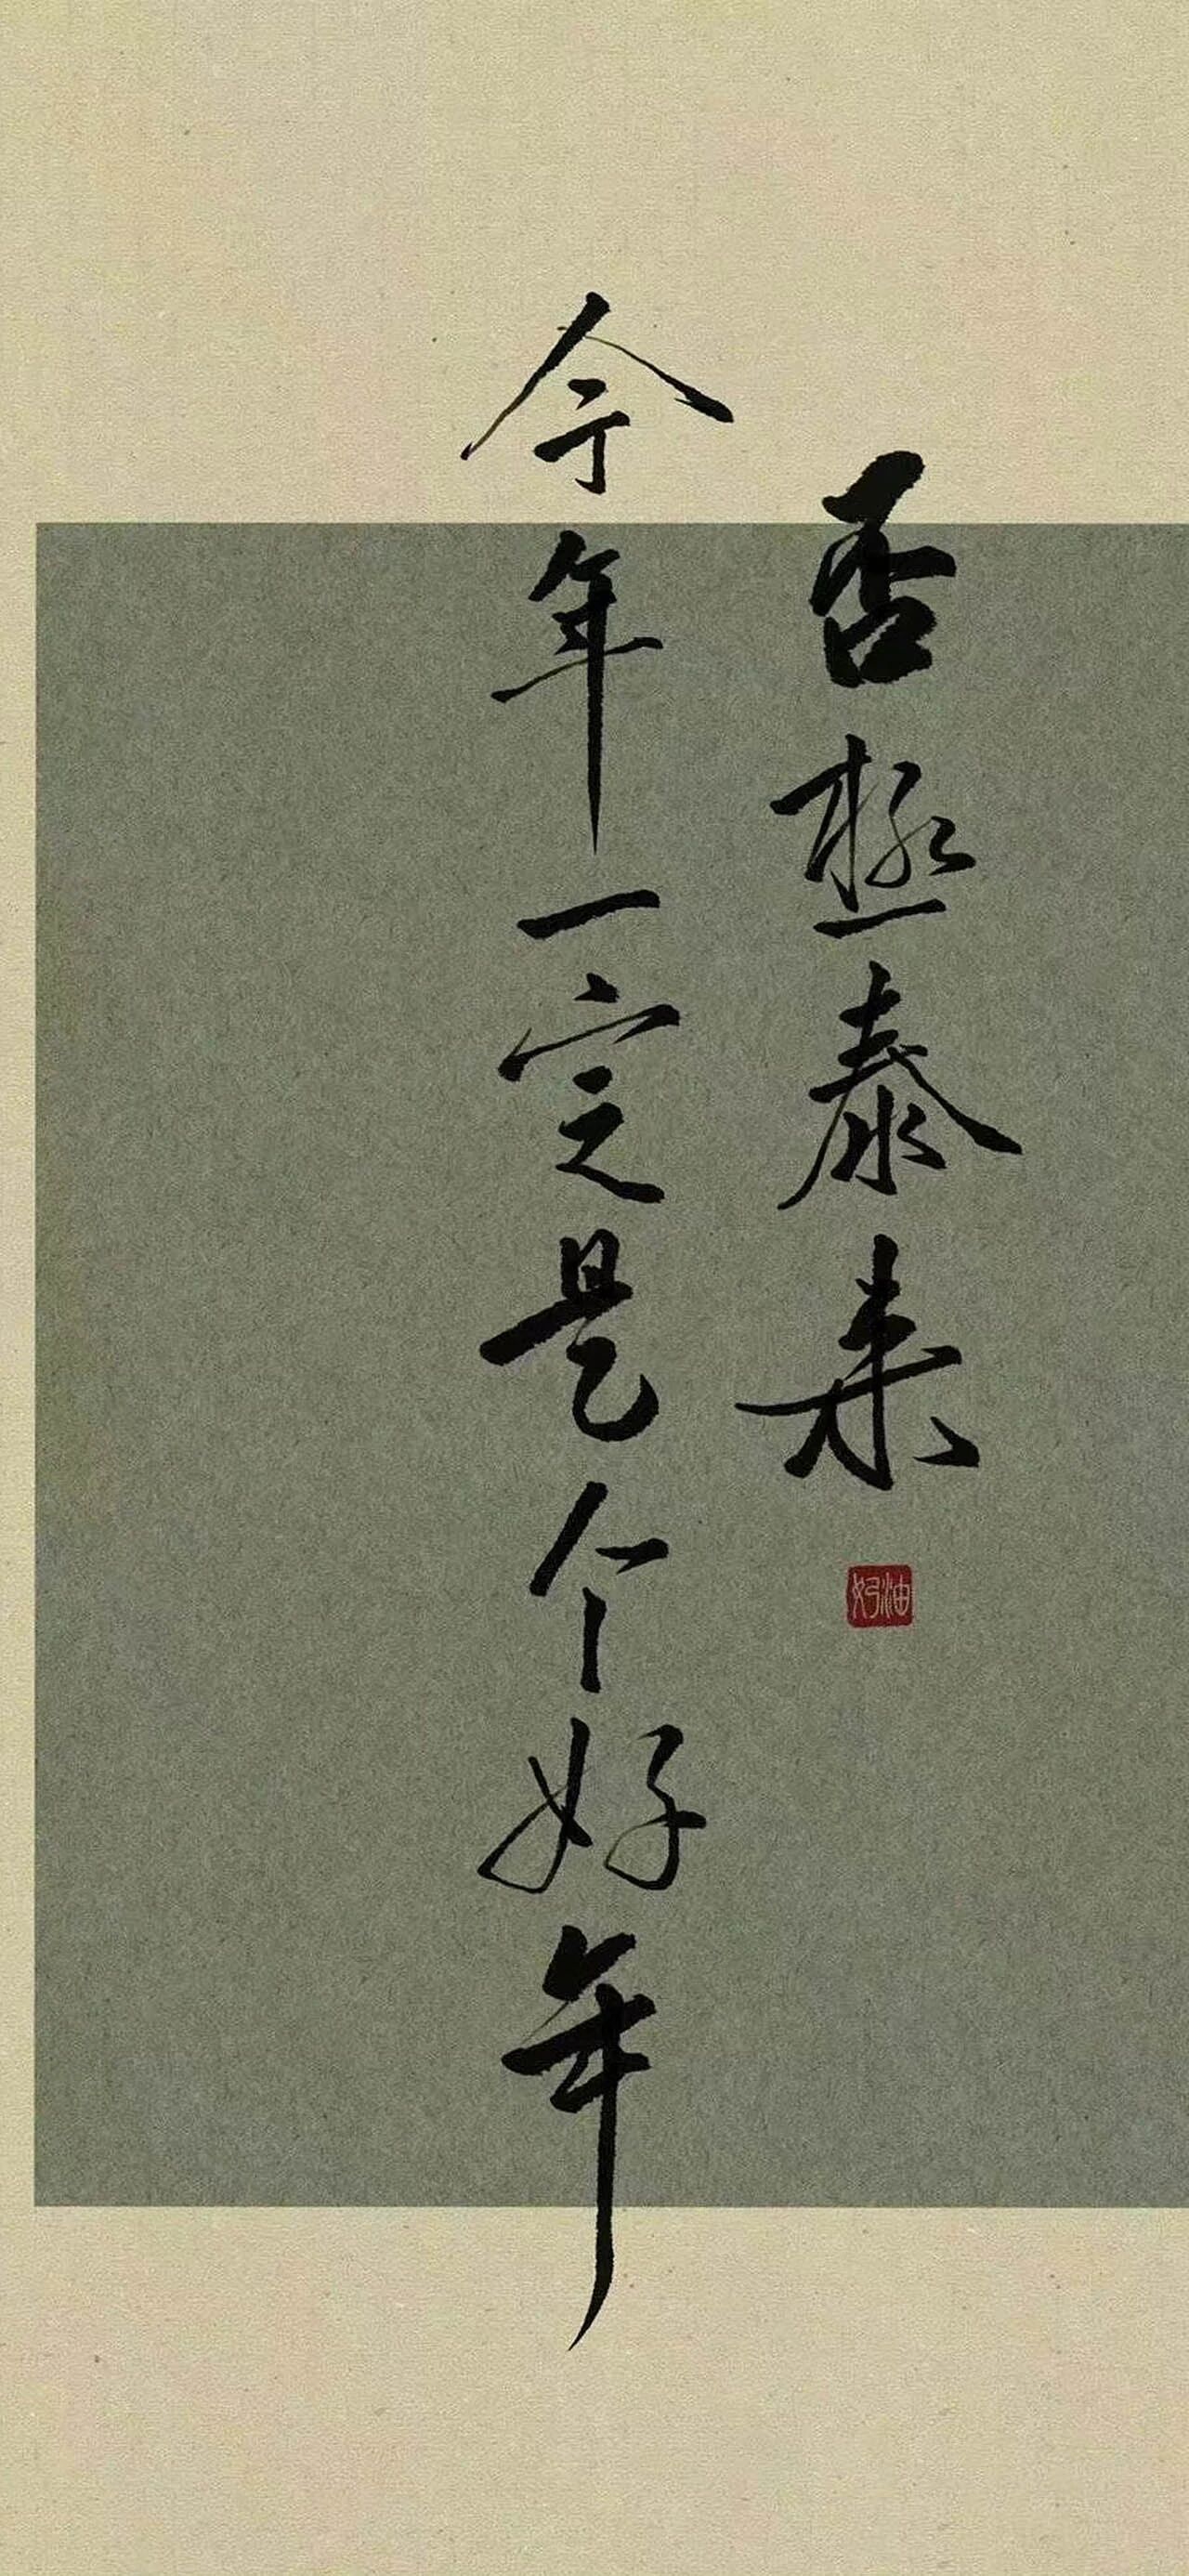 否极泰来
今年一定是个好年
好油